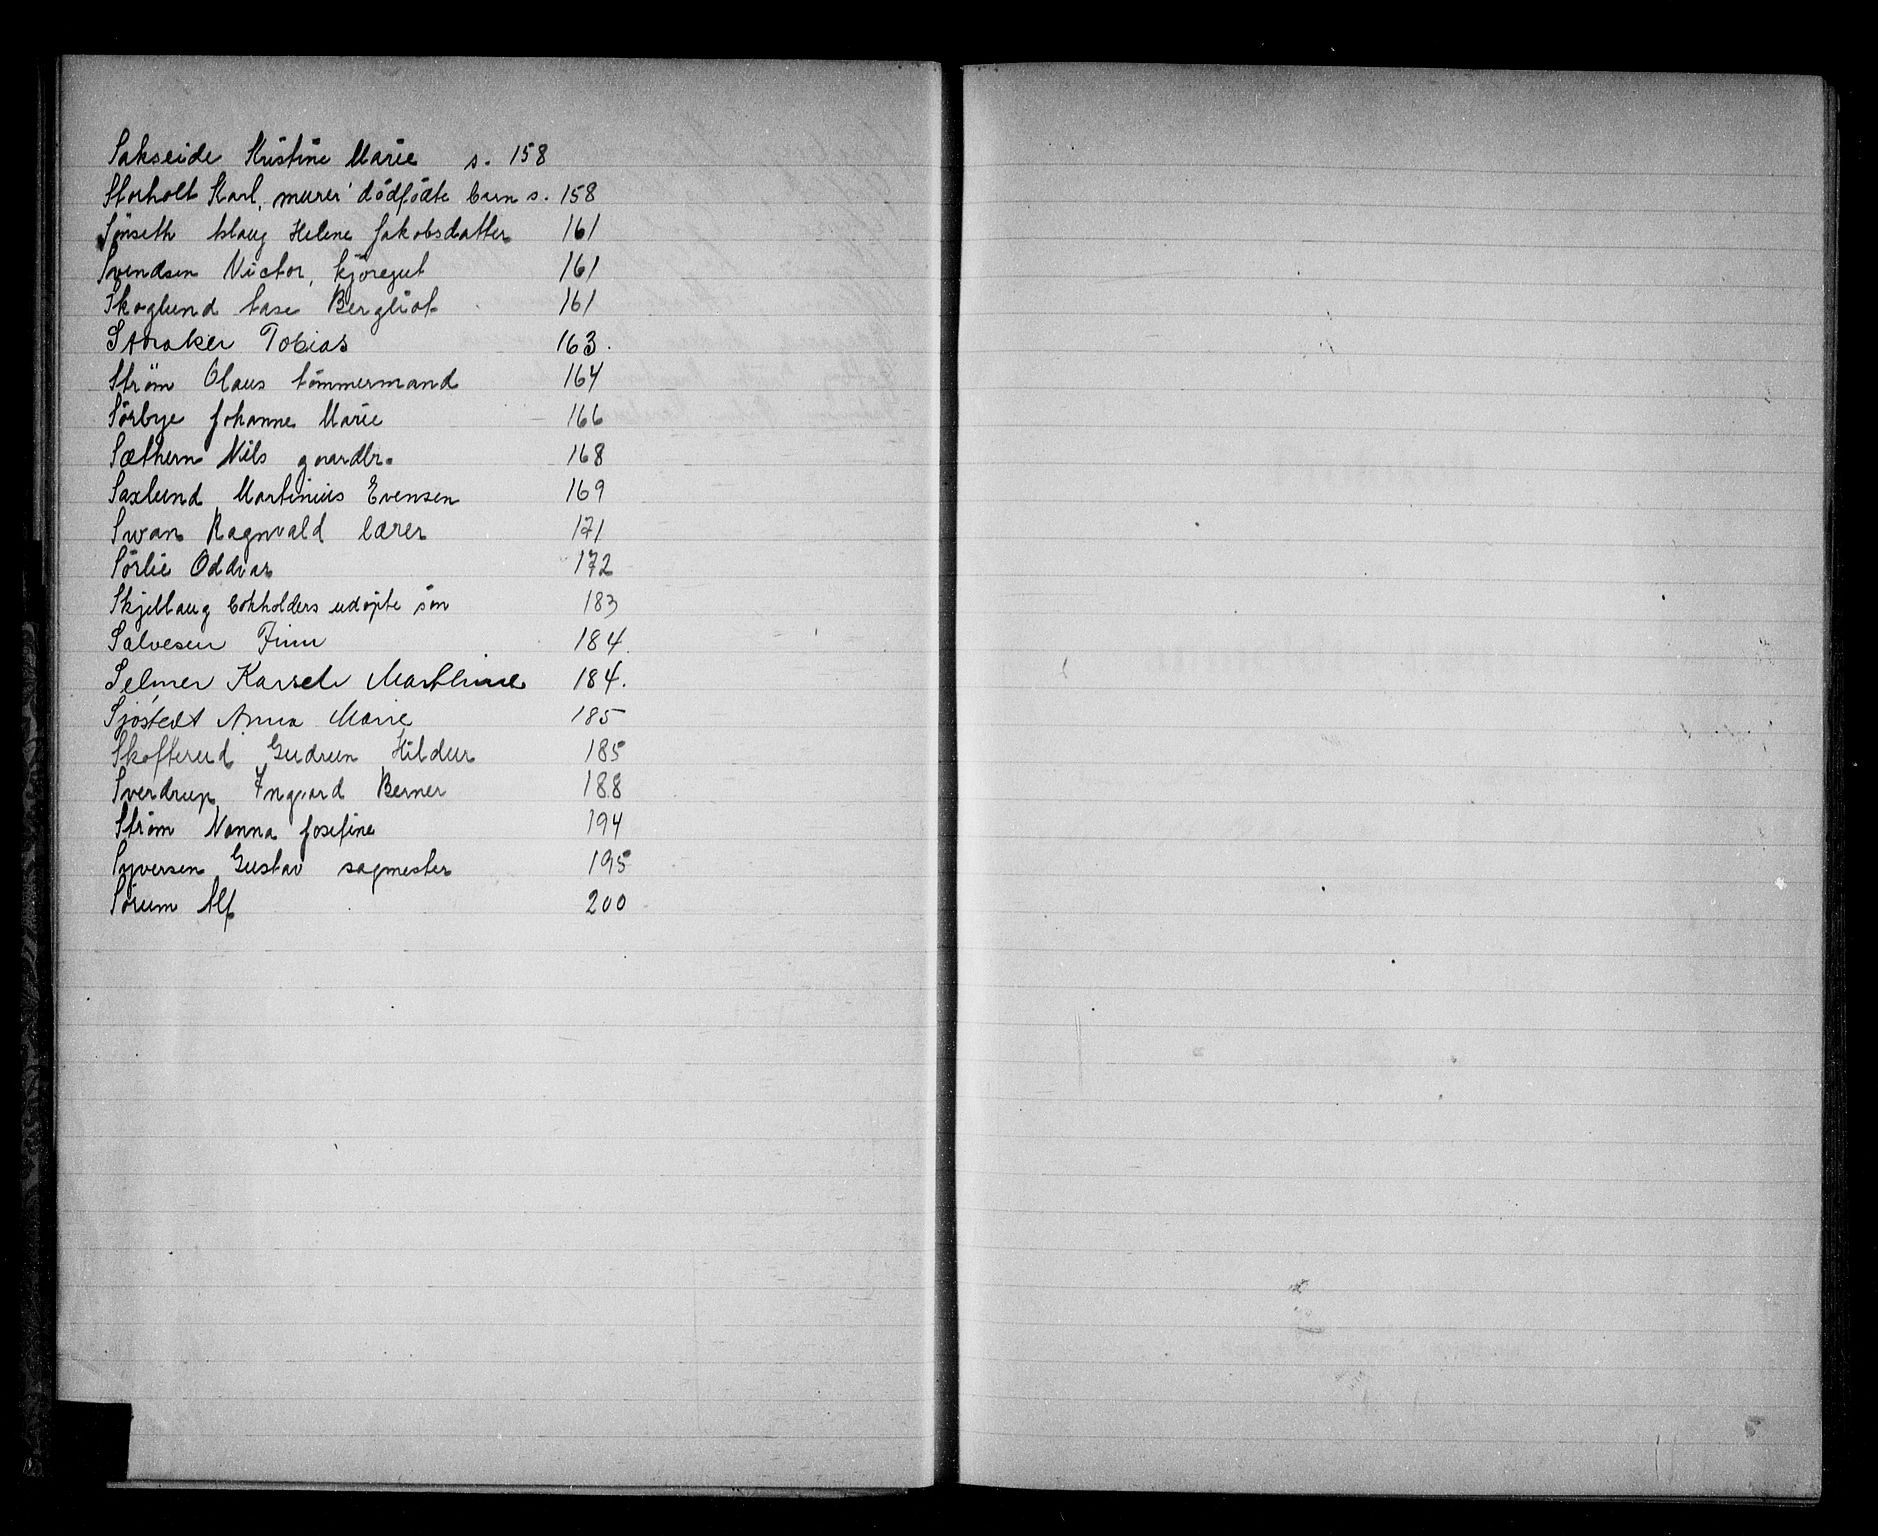 Sakseide Kristine Marie s. 158
Storholt Karl, murer dödfödte barn s. 158
Sönseth Aslaug Helene Jakobsdatter 161
Svendsen Victor, kjöregut 161
Skoglund Aase Bergliot 161
Storaker Tobias 163.
Ström Olaus tömmermand 164
Sörbye Johanne Marie 166
Sæthern Nils gaardbr. 168
Saxlund Martinius Evensen 169
Swan Ragnvald lærer 171
Sörlie Oddvar 172
Skjellaug bokholders udøpte søn 183
Salvesen Finn 184.
Selmer Karsel Marthine 184.
Sjøstedt Anna Marie 185
Skofterud Gudrun Hildur 185
Sverdrup Ingvard Berner 188
Strøm Nanna Josefine 194
Syversen Gustav sagmester 195
Sørum Alf 200